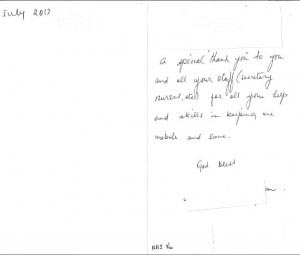 July 2017
A special "thank you" to you
and all your staff (secretary
nurses, etc) for all your help
and skills in keeping me
mobile and sane.
God bless